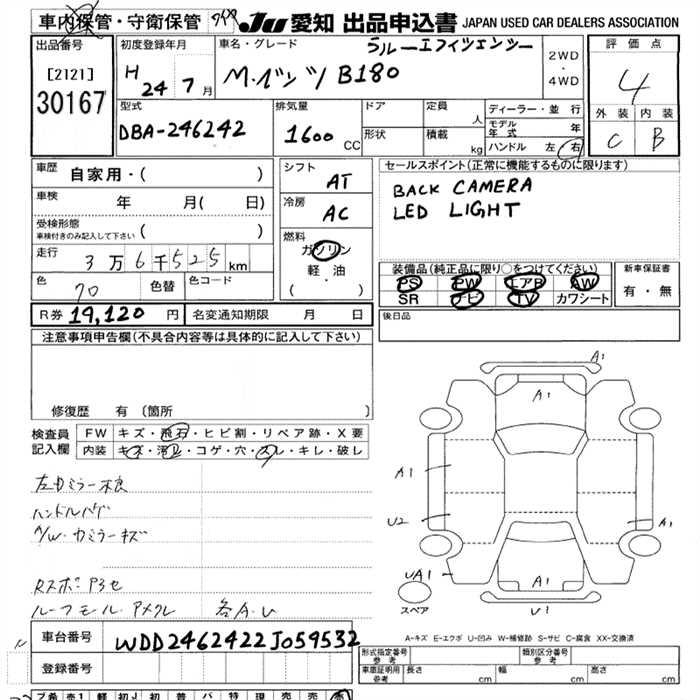 車内保管・守衛保管
JU 愛知 出品申込書 JAPAN USED CAR DEALERS ASSOCIATION
出品番号
[2121]
30167
初度登録年月
H 24 7月
車名・グレード
ブルーエフィシエンシー
M・ベンツ B180
2WD
・
4WD
評価点
4
外装 内装
C B
型式
DBA-246242
排気量
1600 CC
ドア
形状
定員 人
積載 kg
ディーラー・並行
モデル年式 年
ハンドル 左 右
車歴 自家用・( )
車検 年 月( 日)
受検形態
車検付きのみ記入して下さい ( )
走行 3万6千525km
色 70 色替 色コード
シフト AT
冷房 AC
燃料
ガソリン
軽・油
( ・ )
セールスポイント(正常に機能するものに限ります)
BACK CAMERA
LED LIGHT
装備品(純正品に限り○をつけてください)
PS PW エアB AW
SR ナビ TV カワシート
新車保証書
有・無
R券 19,120円 名変通知期限 月 日
後日品
注意事項申告欄(不具合内容等は具体的に記入して下さい)
修復歴 有(箇所 )
検査員記入欄
FW キズ・飛石・ヒビ割・リペア跡・X要
内装 キズ・汚レ・コゲ・穴・スレ・キレ・破レ
ハンドルハゲ
A/W・カミラーキズ
各A・U
A1
A1
A1
U2
A1
UA1
A1
U1
スペア
A-キズ E-エクボ U-凹み W-補修跡 S-サビ C-腐食 XX-交換済
車台番号 WDD2462422J059532
登録番号
型式指定番号 参考
類別区分番号 参考
車証明用 参考 長さ cm 幅 cm 高さ cm